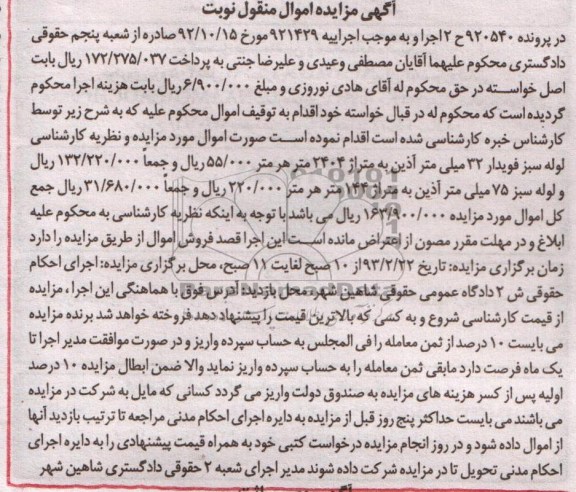 آگهی مزایده اموال منقول نوبت
در پرونده ۹۲۰۵۴۰ ح ۲ اجرا و به موجب اجراییه ۹۲۱۴۲۹ مورخ ۹۲/۱۰/۱۵ صادره از شعبه پنجم حقوقی
دادگستری محکوم علیهما آقایان مصطفی وعیدی و علیرضا جنتی به پرداخت ۱۷۲/۲۷۵/۰۳۷ ریال بابت
اصل خواسـته در حق محکوم له آقای هادی نوروزی و مبلغ ۶/۹۰۰/۰۰۰ ریال بابت هزینه اجرا محکوم
گردیده است که محکوم له در قبال خواسته خود اقدام به توقیف اموال محکوم علیه که به شرح زیر توسط
کارشناس خبره کارشناسی شده است اقدام نموده اسـت صورت اموال مورد مزایده و نظریه کارشناسی
لوله سبز فویدار ۳۲ میلی متر آذین به متراژ ۲۴۰۴ متر هر متر ۵۵/۰۰۰ ریال و جمعاً ۱۳۲/۲۲۰/۰۰۰ ریال
و لوله سبز ۷۵ میلی متر آذین به متراژ ۱۴۴ متر هر متر ۲۲۰/۰۰۰ ریال و جمعاً ۳۱/۶۸۰/۰۰۰ ریال جمع
کل اموال مورد مزایده ۱۶۳/۹۰۰/۰۰۰ ریال می باشد با توجه به اینکه نظریه کارشناسی به محکوم علیه
ابلاغ و در مهلت مقرر مصون از اعتراض مانده اسـت این اجرا قصد فروش اموال از طریق مزایده را دارد
زمان برگزاری مزایده: تاریخ ۹۳/۲/۲۲ از ۱۰ صبح لغایت ۱۱ صبح، محل برگزاری مزایده: اجرای احکام
حقوقی ش ۲ دادگاه عمومی حقوقی شاهین شهر، محل بازدید: آدرس فوق با هماهنگی این اجرا، مزایده
از قیمت کارشناسی شروع و به کسی که بالاترین قیمت را پیشنهاد دهد فروخته خواهد شد برنده مزایده
می بایست ۱۰ درصد از ثمن معامله را فی المجلس به حساب سپرده واریز و در صورت موافقت مدیر اجرا تا
یک ماه فرصت دارد مابقی ثمن معامله را به حساب سپرده واریز نماید والا ضمن ابطال مزایده ۱۰ درصد
اولیه پس از کسر هزینه های مزایده به صندوق دولت واریز می گردد کسانی که مایل به شرکت در مزایده
می باشند می بایست حداکثر پنج روز قبل از مزایده به دایره اجرای احکام مدنی مراجعه تا ترتیب بازدید آنها
از اموال داده شود و در روز انجام مزایده درخواست کتبی خود به همراه قیمت پیشنهادی را به دایره اجرای
احکام مدنی تحویل تا در مزایده شرکت داده شوند مدیر اجرای شعبه ۲ حقوقی دادگستری شاهین شهر